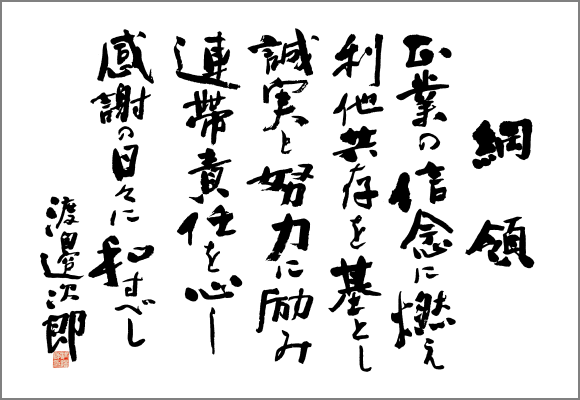 綱領
正業の信念に燃え
利他共存を基とし
誠実と努力に励み
連帯責任を心し
感謝の日々に和すべし
渡邉次郎